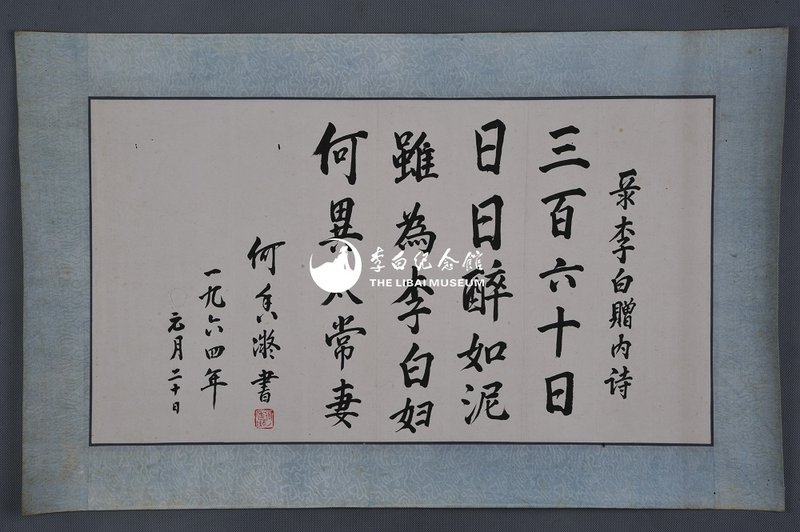 录李白贈内诗
三百六十日
日日醉如泥
雖為李白妇
何異太常妻
何香凝書
一九六四年
元月二十日
李白纪念馆
THE LIBAI MUSEUM